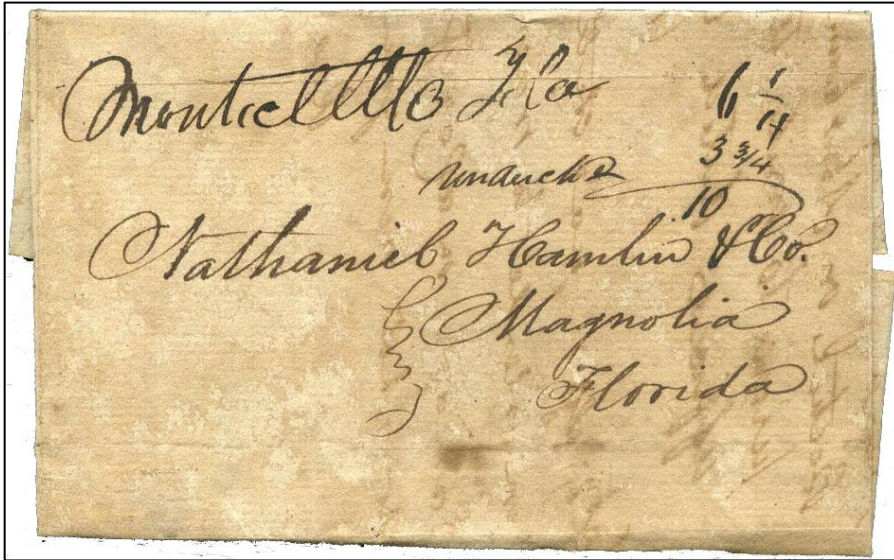 Monticello Fla 6 1/4
undercha 3 3/4
10
Nathaniel Hamlin & Co.
Magnolia
Florida